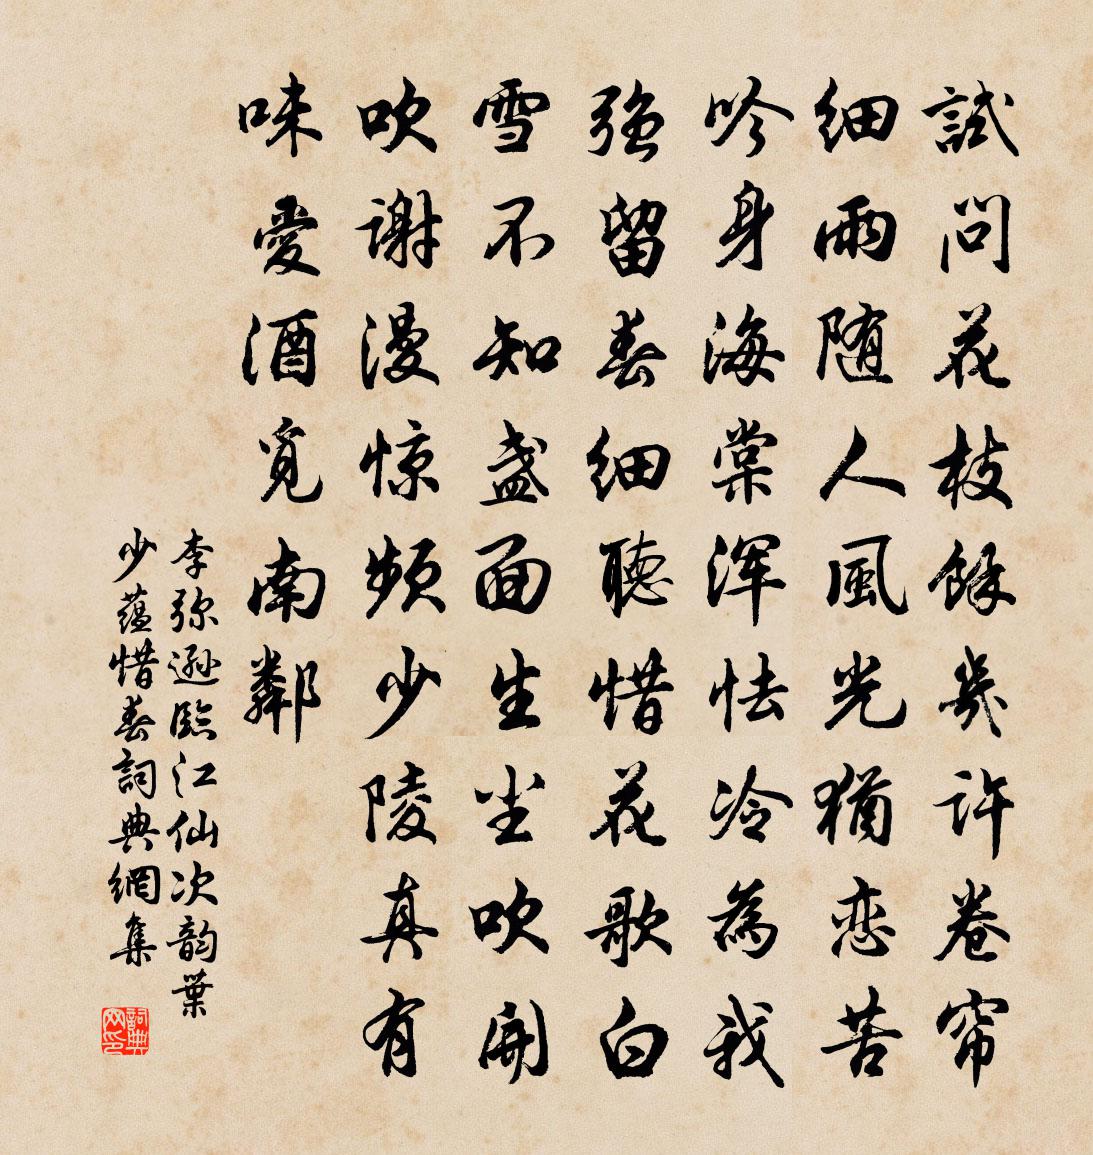 試問花枝餘幾許卷帘
细雨随人風光猶恋苦
吟身海棠浑怯冷為我
强留春细聽惜花歌白
雪不知盏面生尘吹開
吹謝漫惊频少陵真有
味愛酒覓南鄰
李弥遜臨江仙次韵葉
少蕴惜春詞典網集
詞典网印